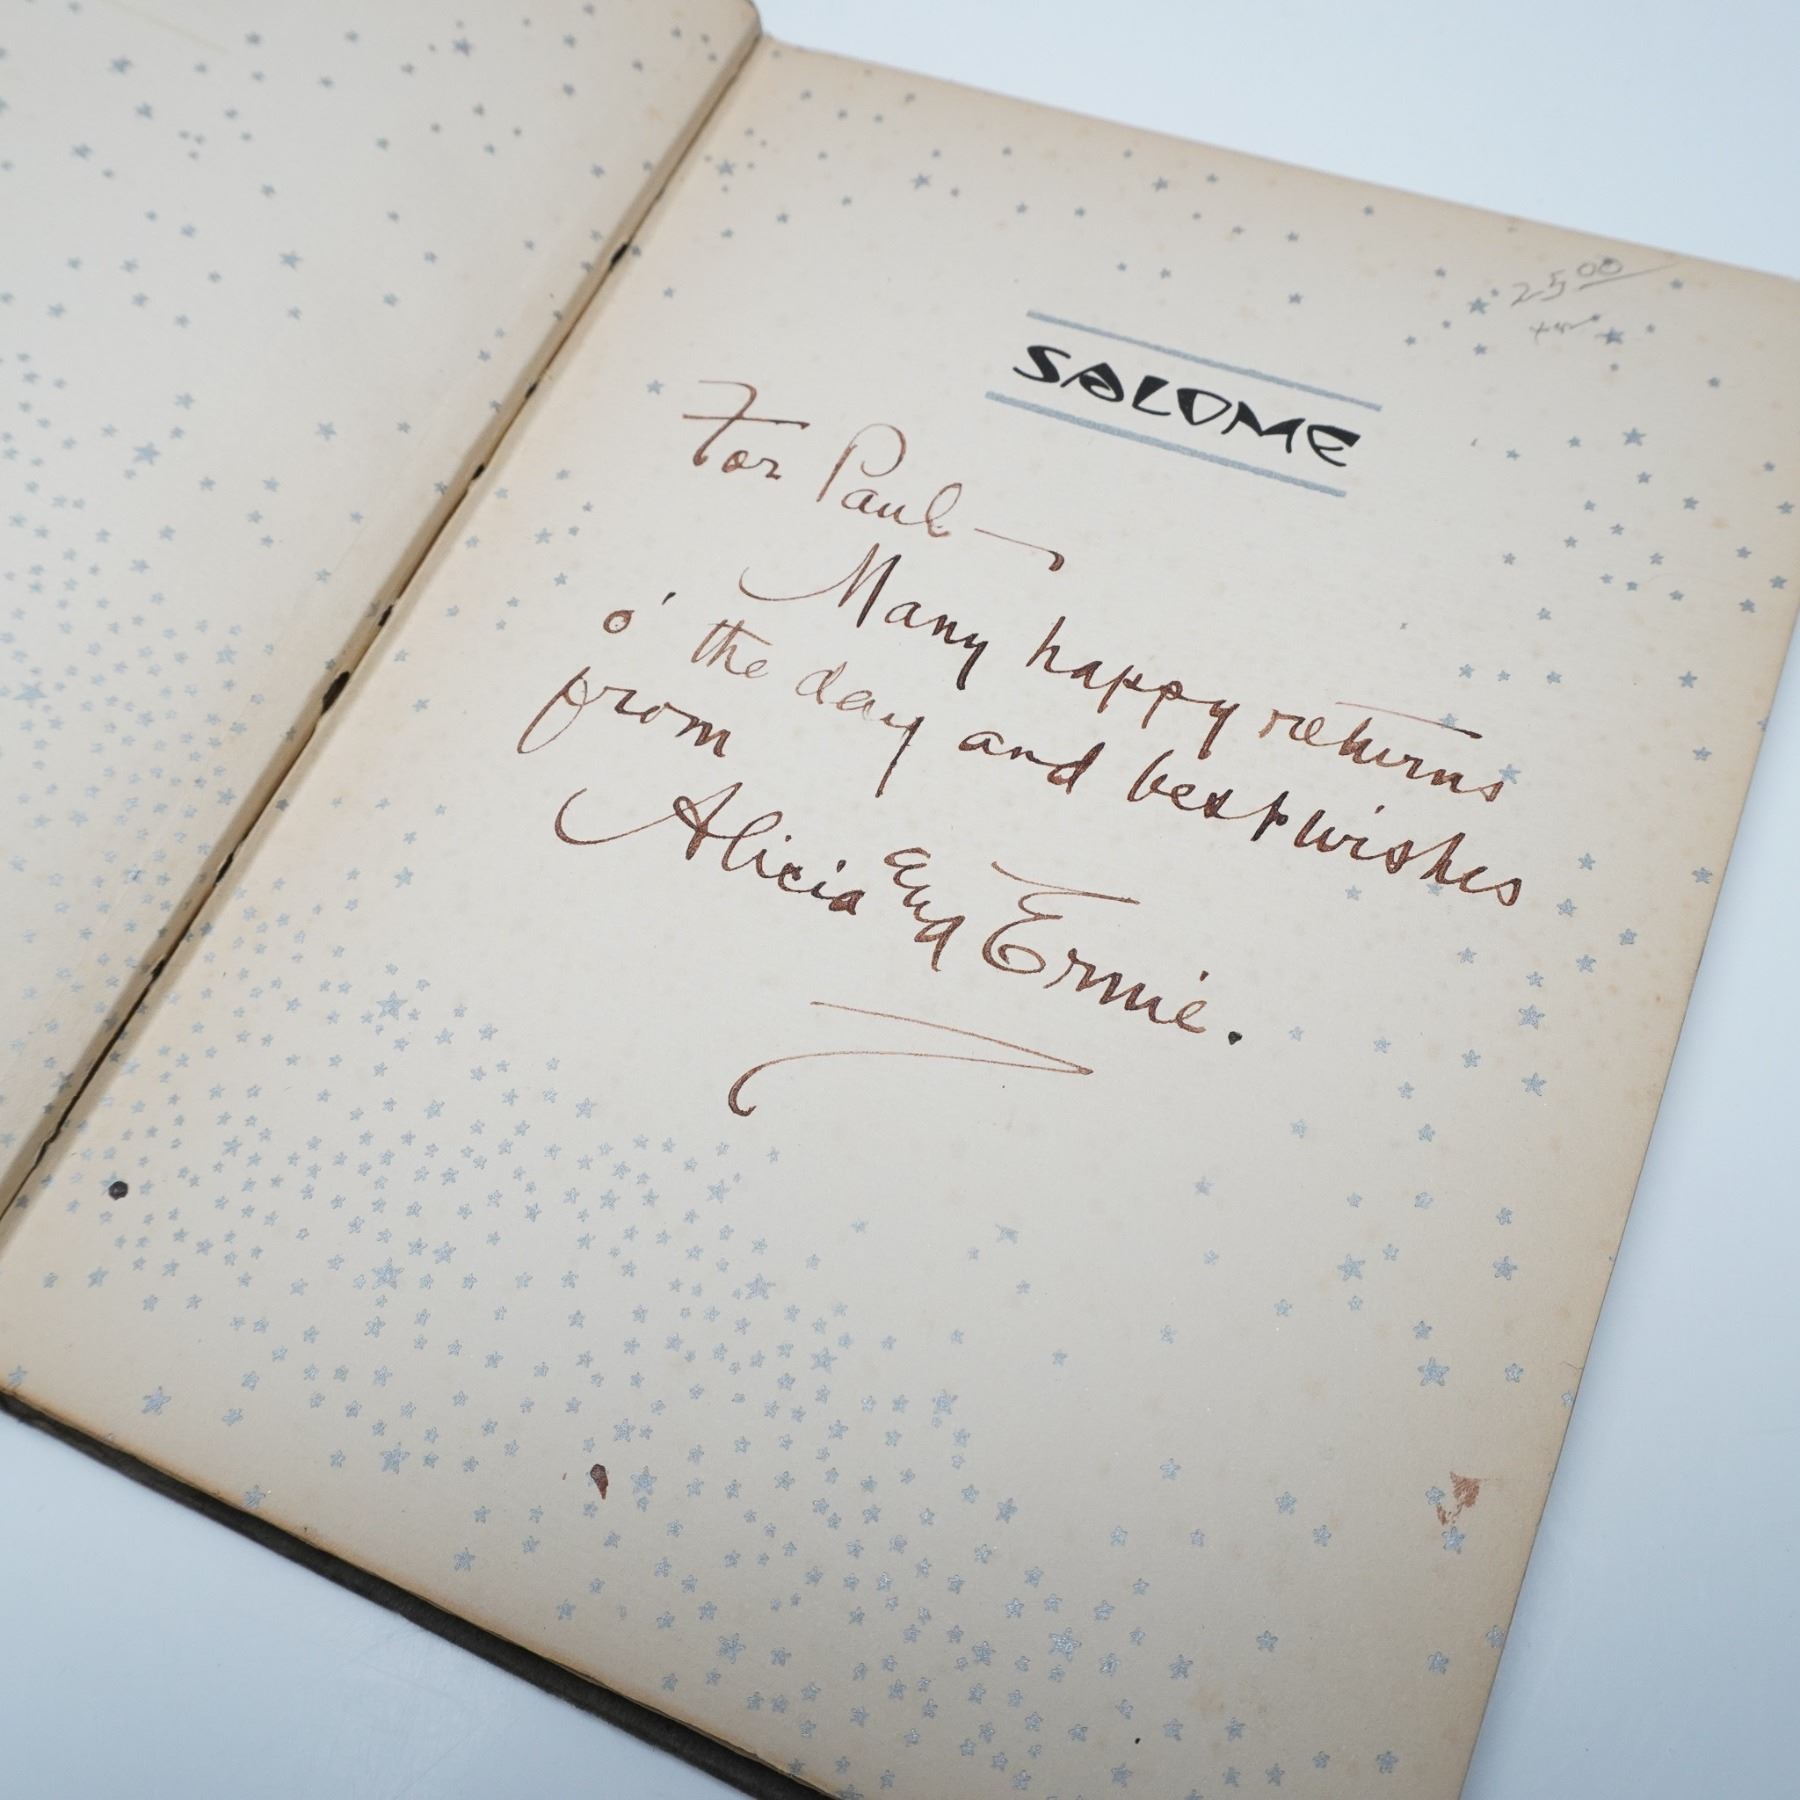 25.00
SALOME
For Paul —
Many happy returns
o' the day and best wishes
from
Alicia and Ernie.